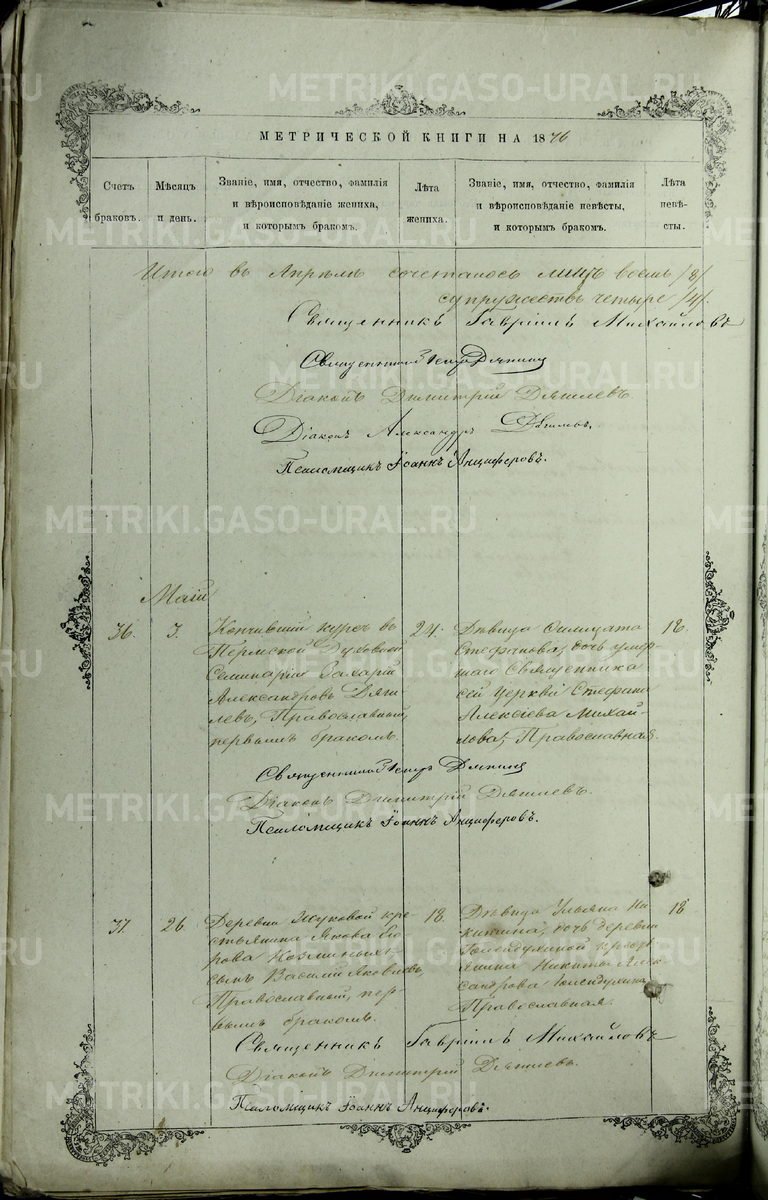 МЕТРИЧЕСКОЙ КНИГИ НА 1876
Счетъ браковъ.
Мѣсяцъ и день.
Званіе, имя, отчество, фамилія и вѣроисповѣданіе жениха, и которымъ бракомъ.
Лѣта жениха.
Званіе, имя, отчество, фамилія и вѣроисповѣданіе невѣсты, и которымъ бракомъ.
Лѣта невѣ-сты.
Итого въ Апрѣлѣ сочеталось лицъ восемь /8/
супружествъ четыре /4/.
Священникъ Гавріилъ Михайловъ
Священникъ Дягилевъ
Діаконъ Димитрій Дягилевъ.
Діаконъ Александръ
Псаломщикъ Іоаннъ Анциферовъ.
Маій
36. 3.
Кончившій курсъ въ
Пермской Духовной
Семинаріи Захарій
Александровъ Дяги-
левъ, Православный,
первымъ бракомъ.
24.
Дѣвица
Стефанова, дочь умер-
шаго Священника
сей церкви Стефана
Алексіева Михай-
лова, Православная.
18.
Священникъ Дягилевъ
Діаконъ Димитрій Дягилевъ.
Псаломщикъ Іоаннъ Анциферовъ.
37. 26.
Деревни Жуковой кре-
стьянина Якова
сынъ Василій Яковлевъ,
Православный, пер-
вымъ бракомъ.
18.
Дѣвица Ульяна Ни-
китина, дочь деревни
крестья-
янина Никиты Алек-
сандрова
Православная.
18
Священникъ Гавріилъ Михайловъ
Діаконъ Димитрій Дягилевъ.
Псаломщикъ Іоаннъ Анциферовъ.
METRIKI.GASO-URAL.RU